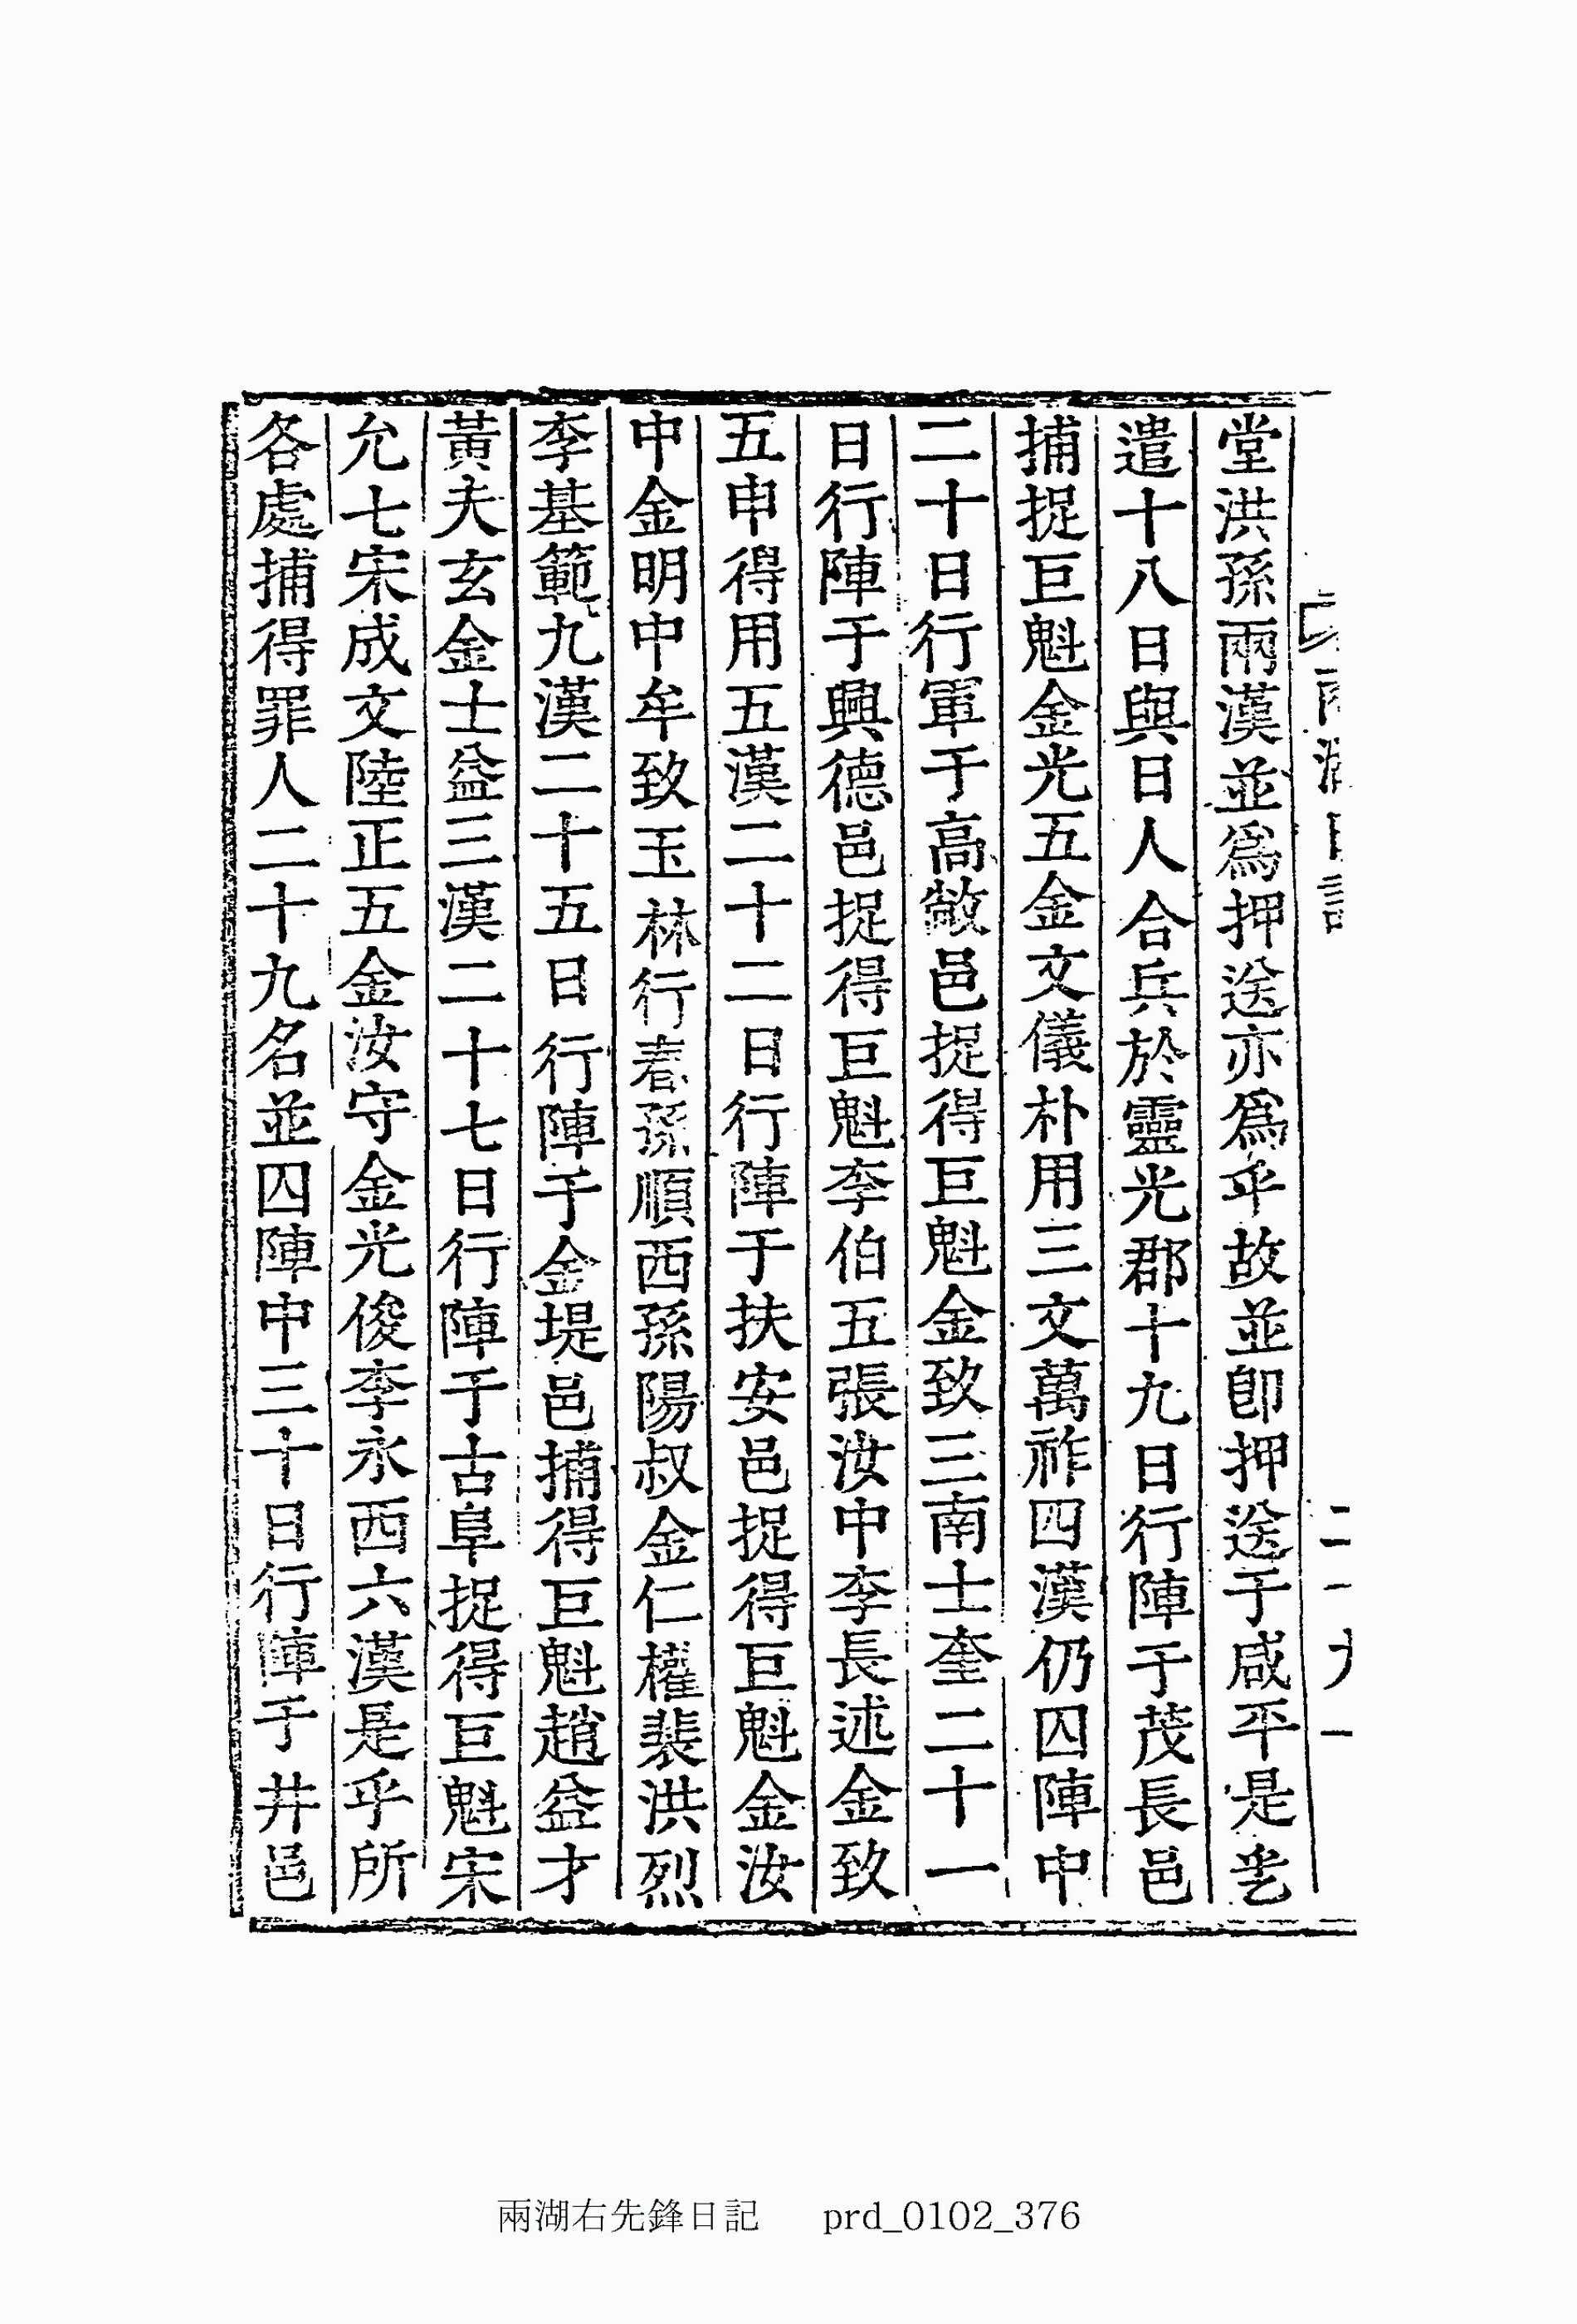 堂洪孫兩漢並爲押送亦爲乎故並卽押送于咸平是乎
遣十八日與日人合兵於靈光郡十九日行陣于茂長邑
捕捉巨魁金光五金文儀朴用三文萬祚四漢仍囚陣中
二十日行軍于高敞邑捉得巨魁金致三南士奎二十一
日行陣于興德邑捉得巨魁李伯五張汝中李長述金致
五申得用五漢二十二日行陣于扶安邑捉得巨魁金汝
中金明中牟致玉林行春孫順西孫陽叔金仁權裴洪烈
李基範九漢二十五日行陣于金堤邑捕得巨魁趙益才
黃夫玄金士益三漢二十七日行陣于古阜捉得巨魁宋
允七宋成文陸正五金汝守金光俊李永西六漢是乎所
各處捕得罪人二十九名並囚陣中三十日行陣于井邑
兩湖右先鋒日記 prd_0102_376